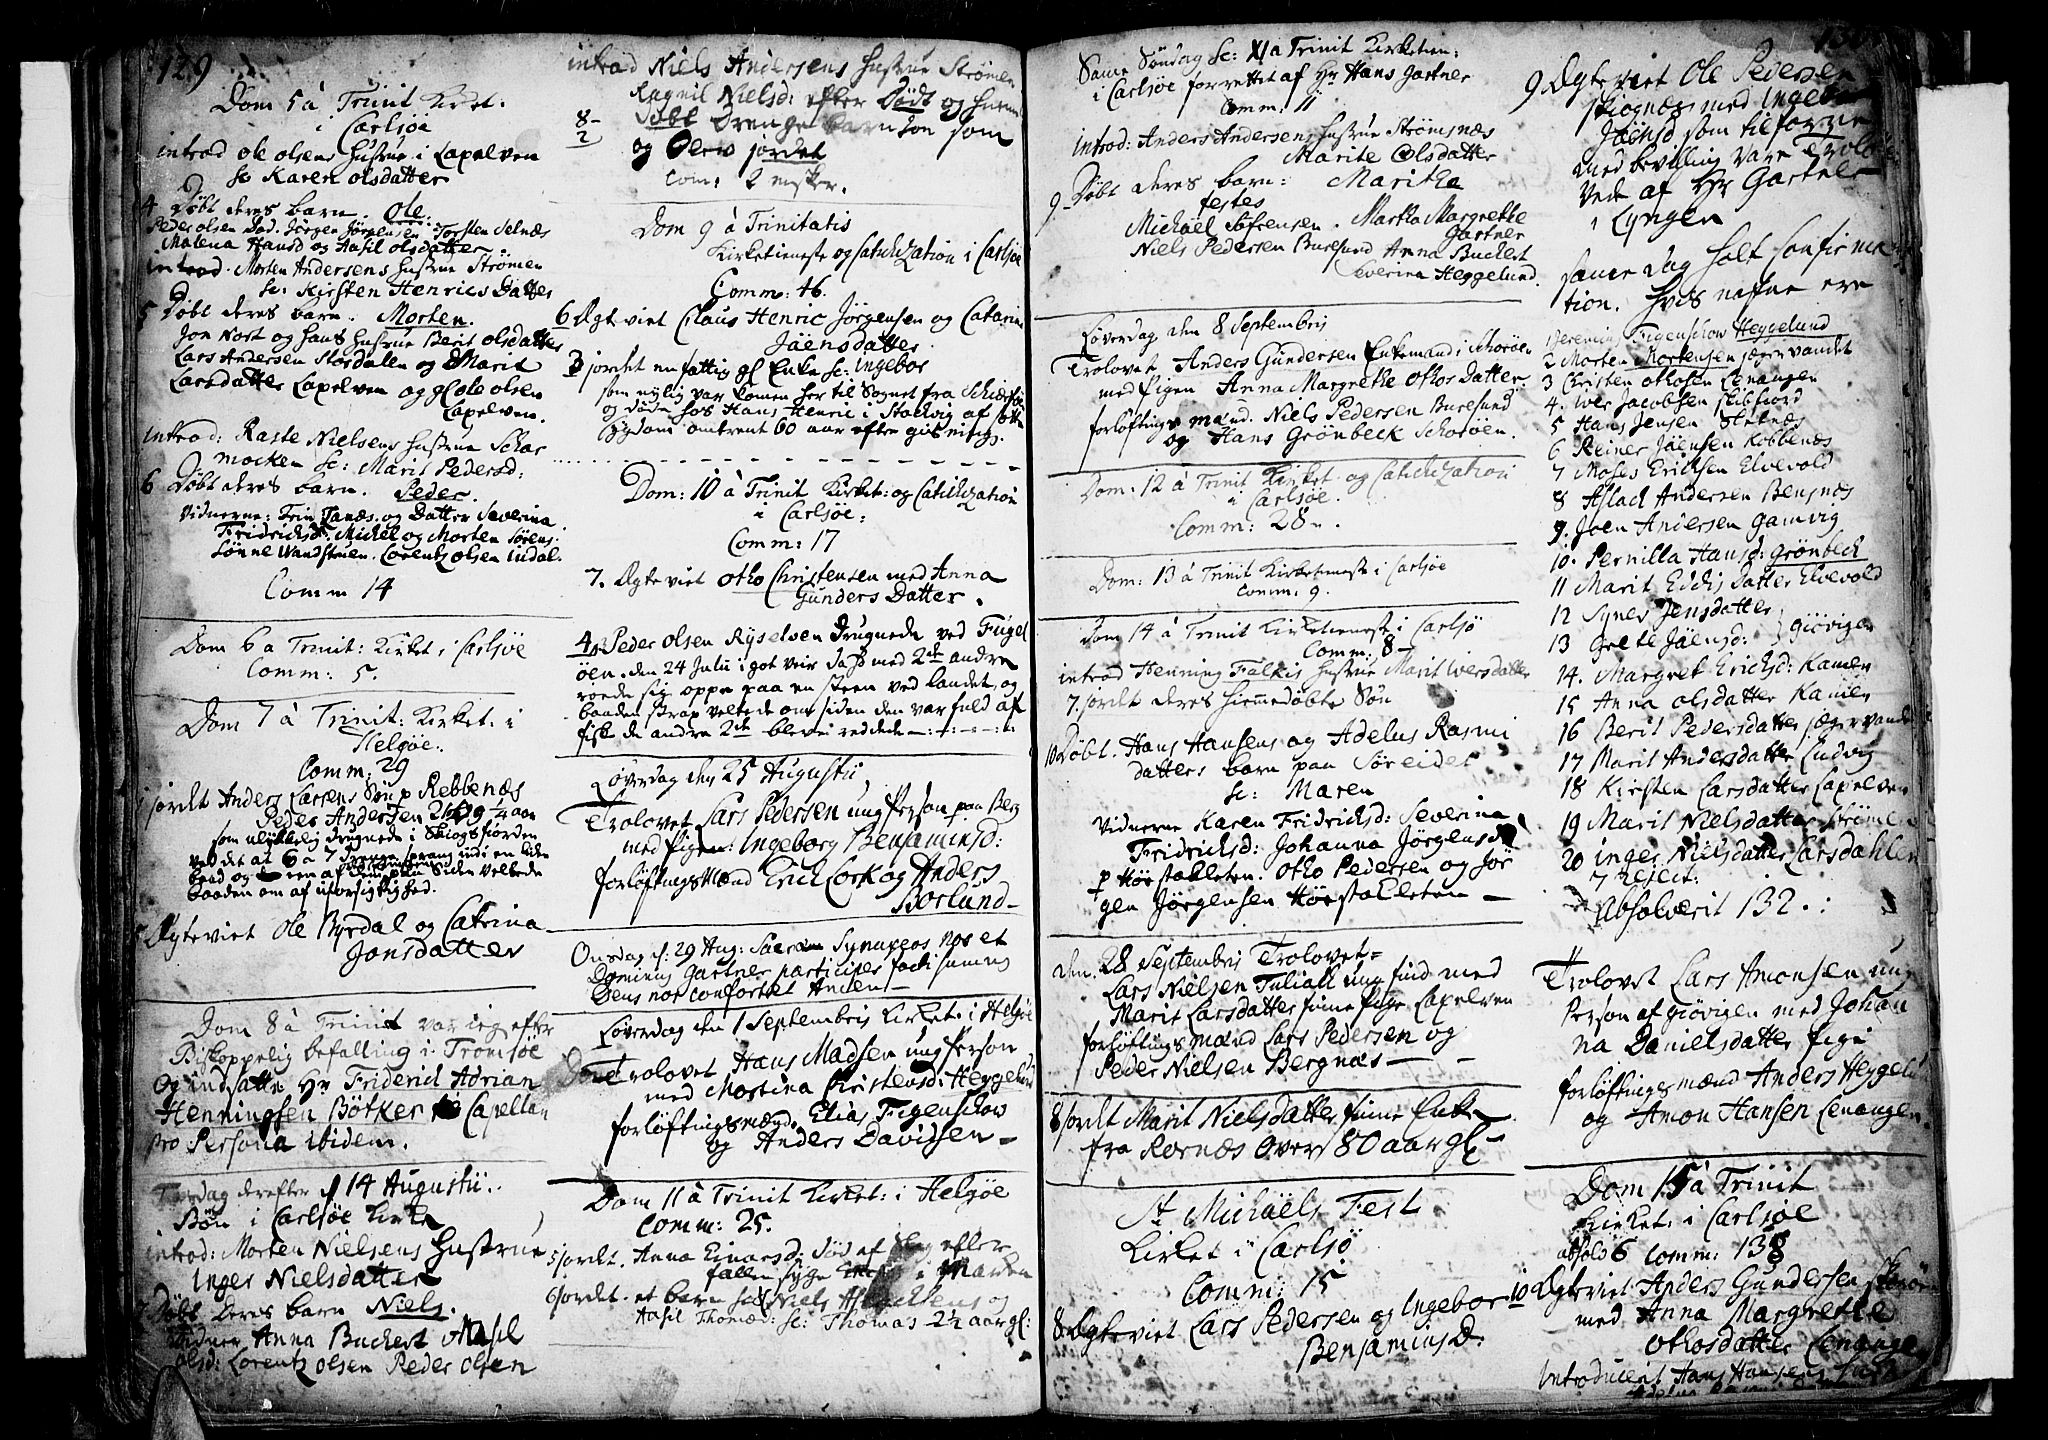 129
Dom 5 à Trinit Kirket:
i Carlsøe
introd ole olsens Hustrue i Capelven
sc Karen olsdatter
4 Døbt deres barn. Ole.
Peder olsen Jørgen Jørgensen Torsten Selnæs
Malena Hansd og Aasil olsdatter.
introd. Morten Andersens Hustrue Strömen
sc: Kirsten Henrics Datter
5 Døbt deres barn. Morten.
Jon Nort og hans hustrue Berit olsdatter
Lars Andersen Stordalen og Marit
Larsdatter Capelven og gl ole olsen
Capelven.
introd: Raste Nielsens Hustrue Schar
mocken sc: Marit Pedersd:
6 Døbt deres barn. Peder.
Vidnerne: og Datter Severina
Fridricksd. Michel og Morten Sörens.
Sönne Vandstuen. Lorentz olsen indal.
Comm 14
Dom 6 a Trinit: Kirket i Carlsøe
Comm: 5.
Dom 7 à Trinit: Kirket: i
Helgøe.
Comm: 29
jordet Anders Larsens Søn Rebbenæs
Peder Andersen 9 1/4 aar
som ulykkelig drugnede i Skogsfiorden
ved det at 6 a 7 indi en liden
baad og een af siden veltede
baaden om af uforsigtighed.
5 Ægteviet Ole Byrdal og Catrina
Jonsdatter
Dom 8 à Trinit var ieg efter
Biskoppelig befalling i Tromsøe
Og indsatte Hr Friderich Adrian
Henningsen Bötker Capellan
pro Persona ibidem.
Tirsdag derefter d 14 Augustii.
Bøn i Carlsøe Kirke
introd: Morten Nielsens Hustrue
Inger Nielsdatter
7 Døbt deres barn Niels.
Vidner Anna Buchert Aasil
olsd: Lorentz olsen Peder olsen
introd Niels Andersens Hustrue Strömen
Ragnil Nielsd: efter Födt og hiemme
8- Döbt Drenge barn son som
2 og Blev jordet
Com: 2 msker.
Dom 9 à Trinitatis
Kirketieneste og Catichization i Carlsøe
Comm: 16.
6 Ægteviet Claus Henric Jørgensen og Catarina
Jäensdatter
3 jordet en fattig gl Enke sc: Ingebor
som nylig var komen her til Sognet fra
og døde hos Hans Henric i Stachvig af
sygdom omtrent 60 aar efter gisning.
Dom: 10 à Trinit Kirket: og Catichization
i Carlsøe:
Comm: 17
7. Ægteviet Otho Christensen med Anna
Gunders Datter.
4. Peder olsen Ryselven Drugnede ved Fugel
öen. den 24 Julii i got veir da med 2de andre
roede sig oppe paa en steen ved landet, og
baaden strax veltede om siden den var fuld af
fisk de andre 2de bleve reddede
Löverdag den 25 Augustii
Trolovet Lars Pedersen ung Person paa Berg
med Pigen: Ingeborg Benjaminsd:
forlöftingsmænd Erich Cork og Anders
Borlund
Onsdag d: 29 Aug: Sacram Synaxeos nos et
Dominus Gartner participes facti sumus
Deus nos confortet Amen
Löverdag den 1 Septembris Kirket: i Helgöe
Trolovet Hans Madsen ung Person
med Mortina Christensd: Heggelund
forlöftingsmænd. Elias Figenschow
og Anders Davidsen
Dom 11 à Trinit Kirket: i Helgøe
Comm: 25.
5 jordet. Anna Einarsd: död af efter
fallen syge
6 jordet et barn sc: Niels og
Aasil Thomæd: sc: Thomas 2 1/2 aar gl:
130
Same Søndag sc: XI a Trinit Kirketien:
i Carlsøe forrettet af Hr Hans Gartner
Comm: 11
introd: Anders Andersens Hustrue Strömsnæs
Marite Olsdatter
9 Døbt deres barn: Maritha
festes
Michael Söfrensen. Martha Margrethe
Gartner
Niels Pedersen Buresund Anna Buchert
Severina Heggelund.
Löverdag den 8 Septembris
Trolovet Anders Gundersen Enkemand i Schoröen
med Pigen Anna Margrethe Othos Datter.
forlöftings mænd. Niels Pedersen Buresund
og Hans Grönbeck Schoröen.
Dom: 12 à Trinit Kirket og Catichization
i Carlsøe.
Comm: 28.
Dom: 13 à Trinit Kirketieneste i Carlsøe
Comm: 9.
Dom 14 à Trinit Kirketieneste i Carlsö
Comm: 8
introd Henning Falkis Hustrue Marit Iversdatter
7. jordt deres hiemmedöbte Søn
10 Døbt. Hans Hansens og Adelus Rasmi
datters barn paa Söreidet
sc: Maren
Vidnerne Karen Fridricksd: Severina
Fridricksd: Johanna Jörgensd
p Höystakleten. Otho Pedersen og Jör
gen Jörgensen Höystakleten
den 28 Septembris Trolovet
Lars Nielsen Tuliall ung find med
Marit Larsdatter finne pige Capelven
forlöftings mænd Lars Pedersen og
Peder Nielsen Bergnæs
8 jordet Marit Nielsdatter finne Enke
fra Rornæs over 80 aar gl
St Michaëls Fest
Kirket i Carlsö
Comm: 15
8 Ægteviet Lars Pedersen og Ingebor
Benjamins D.
9 Ægteviet Ole Pedersen
skiognæs med Ingebor
Jäensd som tilforne
med bevilling vare Trolovede
ved af Hr Gartner
i Lyngen
same dag holt Confirma
tion. hvis nafne ere
1 Jeremias Figenschow Heggelund
2 Morten Mortensen jægervandet
3 Christen othosen Lenangen
4. Iver Jacobsen skibfiord
5 Hans Jensen Sletnæs
6 Reiner Jäensen Kobbenæs
7 Moses Ericksen Elvevold
8 Aslach Andersen Bensnæs
9. Joen Andersen Gamvig
10. Pernilla Hansd: Grönbech
11 Marit Erichs Datter Elvevold
12 Synev Jensdatter
13 Grete Jäensd: } Giövigen
14. Margret Ericksd: Kamen
15 Anna olsdatter Kamen
16 Berit Pedersdatter jægervandet
17 Marit Andersdatter Ludvig
18 Kirsten Larsdatter Capelven
19 Marit Nielsdatter Strömen
20 Inger Nielsdatter Larsdahlen
7 Reject:
Absolverit 132.
Trolovet Lars Amonsen ung
Person af giövigen med Johan
na Danielsdatter Pige
forlöftings mænd Anders Heggelund
og Amon Hansen Lenangen.
Dom 15 à Trinit
Kirket: i Carlsøe
absols 6 Comm: 138
10 Ægteviet Anders Gundersen Skorøen
med Anna Margrethe
Othosdatter Lenangen
Introducerit Hans Hansens Hustr